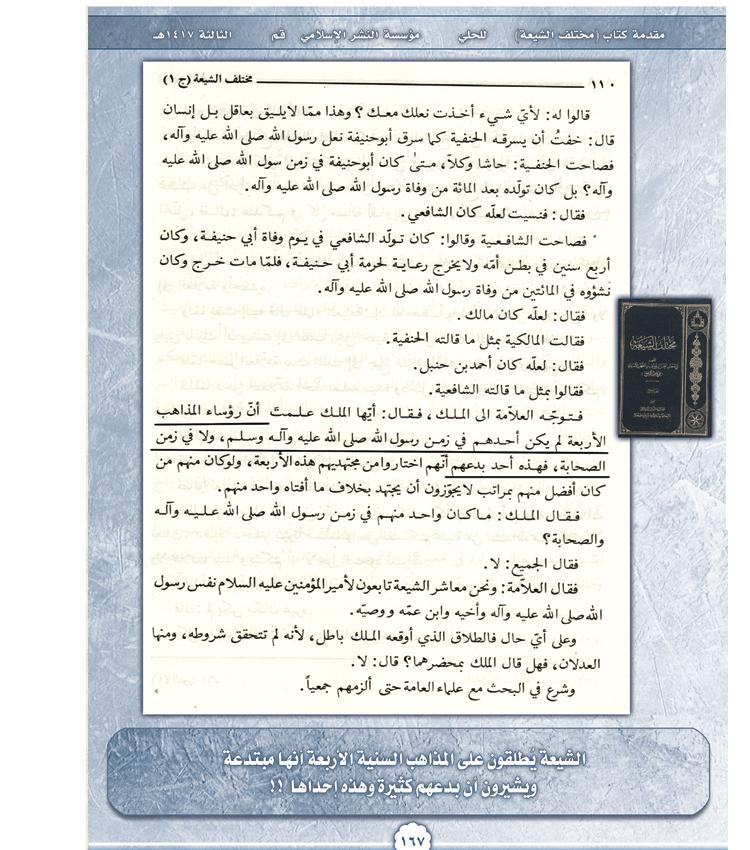 مقدمة كتاب (مختلف الشيعة) للحلي مؤسسة النشر الاسلامي قم الثالثة ١٤١٧هـ
١١٠ مختلف الشيعة (ج ١)
قالوا له: لأيّ شيء أخذت نعلك معك؟ وهذا ممّا لايليق بعاقل بل إنسان
قال: خفتُ أن يسرقه الحنفية كما سرق أبوحنيفة نعل رسول الله صلى الله عليه وآله،
فصاحت الحنفية: حاشا وكلاّ، متىٰ كان أبوحنيفة في زمن سول الله صلى الله عليه
وآله؟ بل كان تولّده بعد المائة من وفاة رسول الله صلى الله عليه وآله.
فقال: فنسيت لعلّه كان الشافعي.
فصاحت الشافعية وقالوا: كان تولّد الشافعي في يوم وفاة أبي حنيفة، وكان
أربع سنين في بطن أمّه ولايخرج رعاية لحرمة أبي حنيفة، فلمّا مات خرج وكان
نشؤوه في المائتين من وفاة رسول الله صلى الله عليه وآله.
فقال: لعلّه كان مالك.
فقالت المالكية بمثل ما قالته الحنفية.
فقال: لعلّه كان أحمدبن حنبل.
فقالوا بمثل ما قالته الشافعية.
فتوجّه العلاّمة الى الملك، فقال: أيّها الملك علمتَ أنّ رؤساء المذاهب
الأربعة لم يكن أحدهم في زمن رسول الله صلى الله عليه وآله وسلم، ولا في زمن
الصحابة، فهذه أحد بدعهم أنّهم اختاروا من مجتهديهم هذه الأربعة، ولوكان منهم من
كان أفضل منهم بمراتب لايجوّزون أن يجتهد بخلاف ما أفتاه واحد منهم.
فقال الملك: ماكان واحد منهم في زمن رسول الله صلى الله عليه وآله
والصحابة؟
فقال الجميع: لا.
فقال العلاّمة: ونحن معاشر الشيعة تابعون لأمير المؤمنين عليه السلام نفس رسول
الله صلى الله عليه وآله وأخيه وابن عمّه ووصيّه.
وعلى أيّ حال فالطلاق الذي أوقعه الملك باطل، لأنه لم تتحقق شروطه، ومنها
العدلان، فهل قال الملك بمحضرهما؟ قال: لا.
وشرع في البحث مع علماء العامة حتى ألزمهم جمعياً.
مختلف الشيعة
الشيعة يُطلقون على المذاهب السنية الاربعة انها مبتدعة
ويشيرون ان بدعهم كثيرة وهذه احداها !!
١٦٧